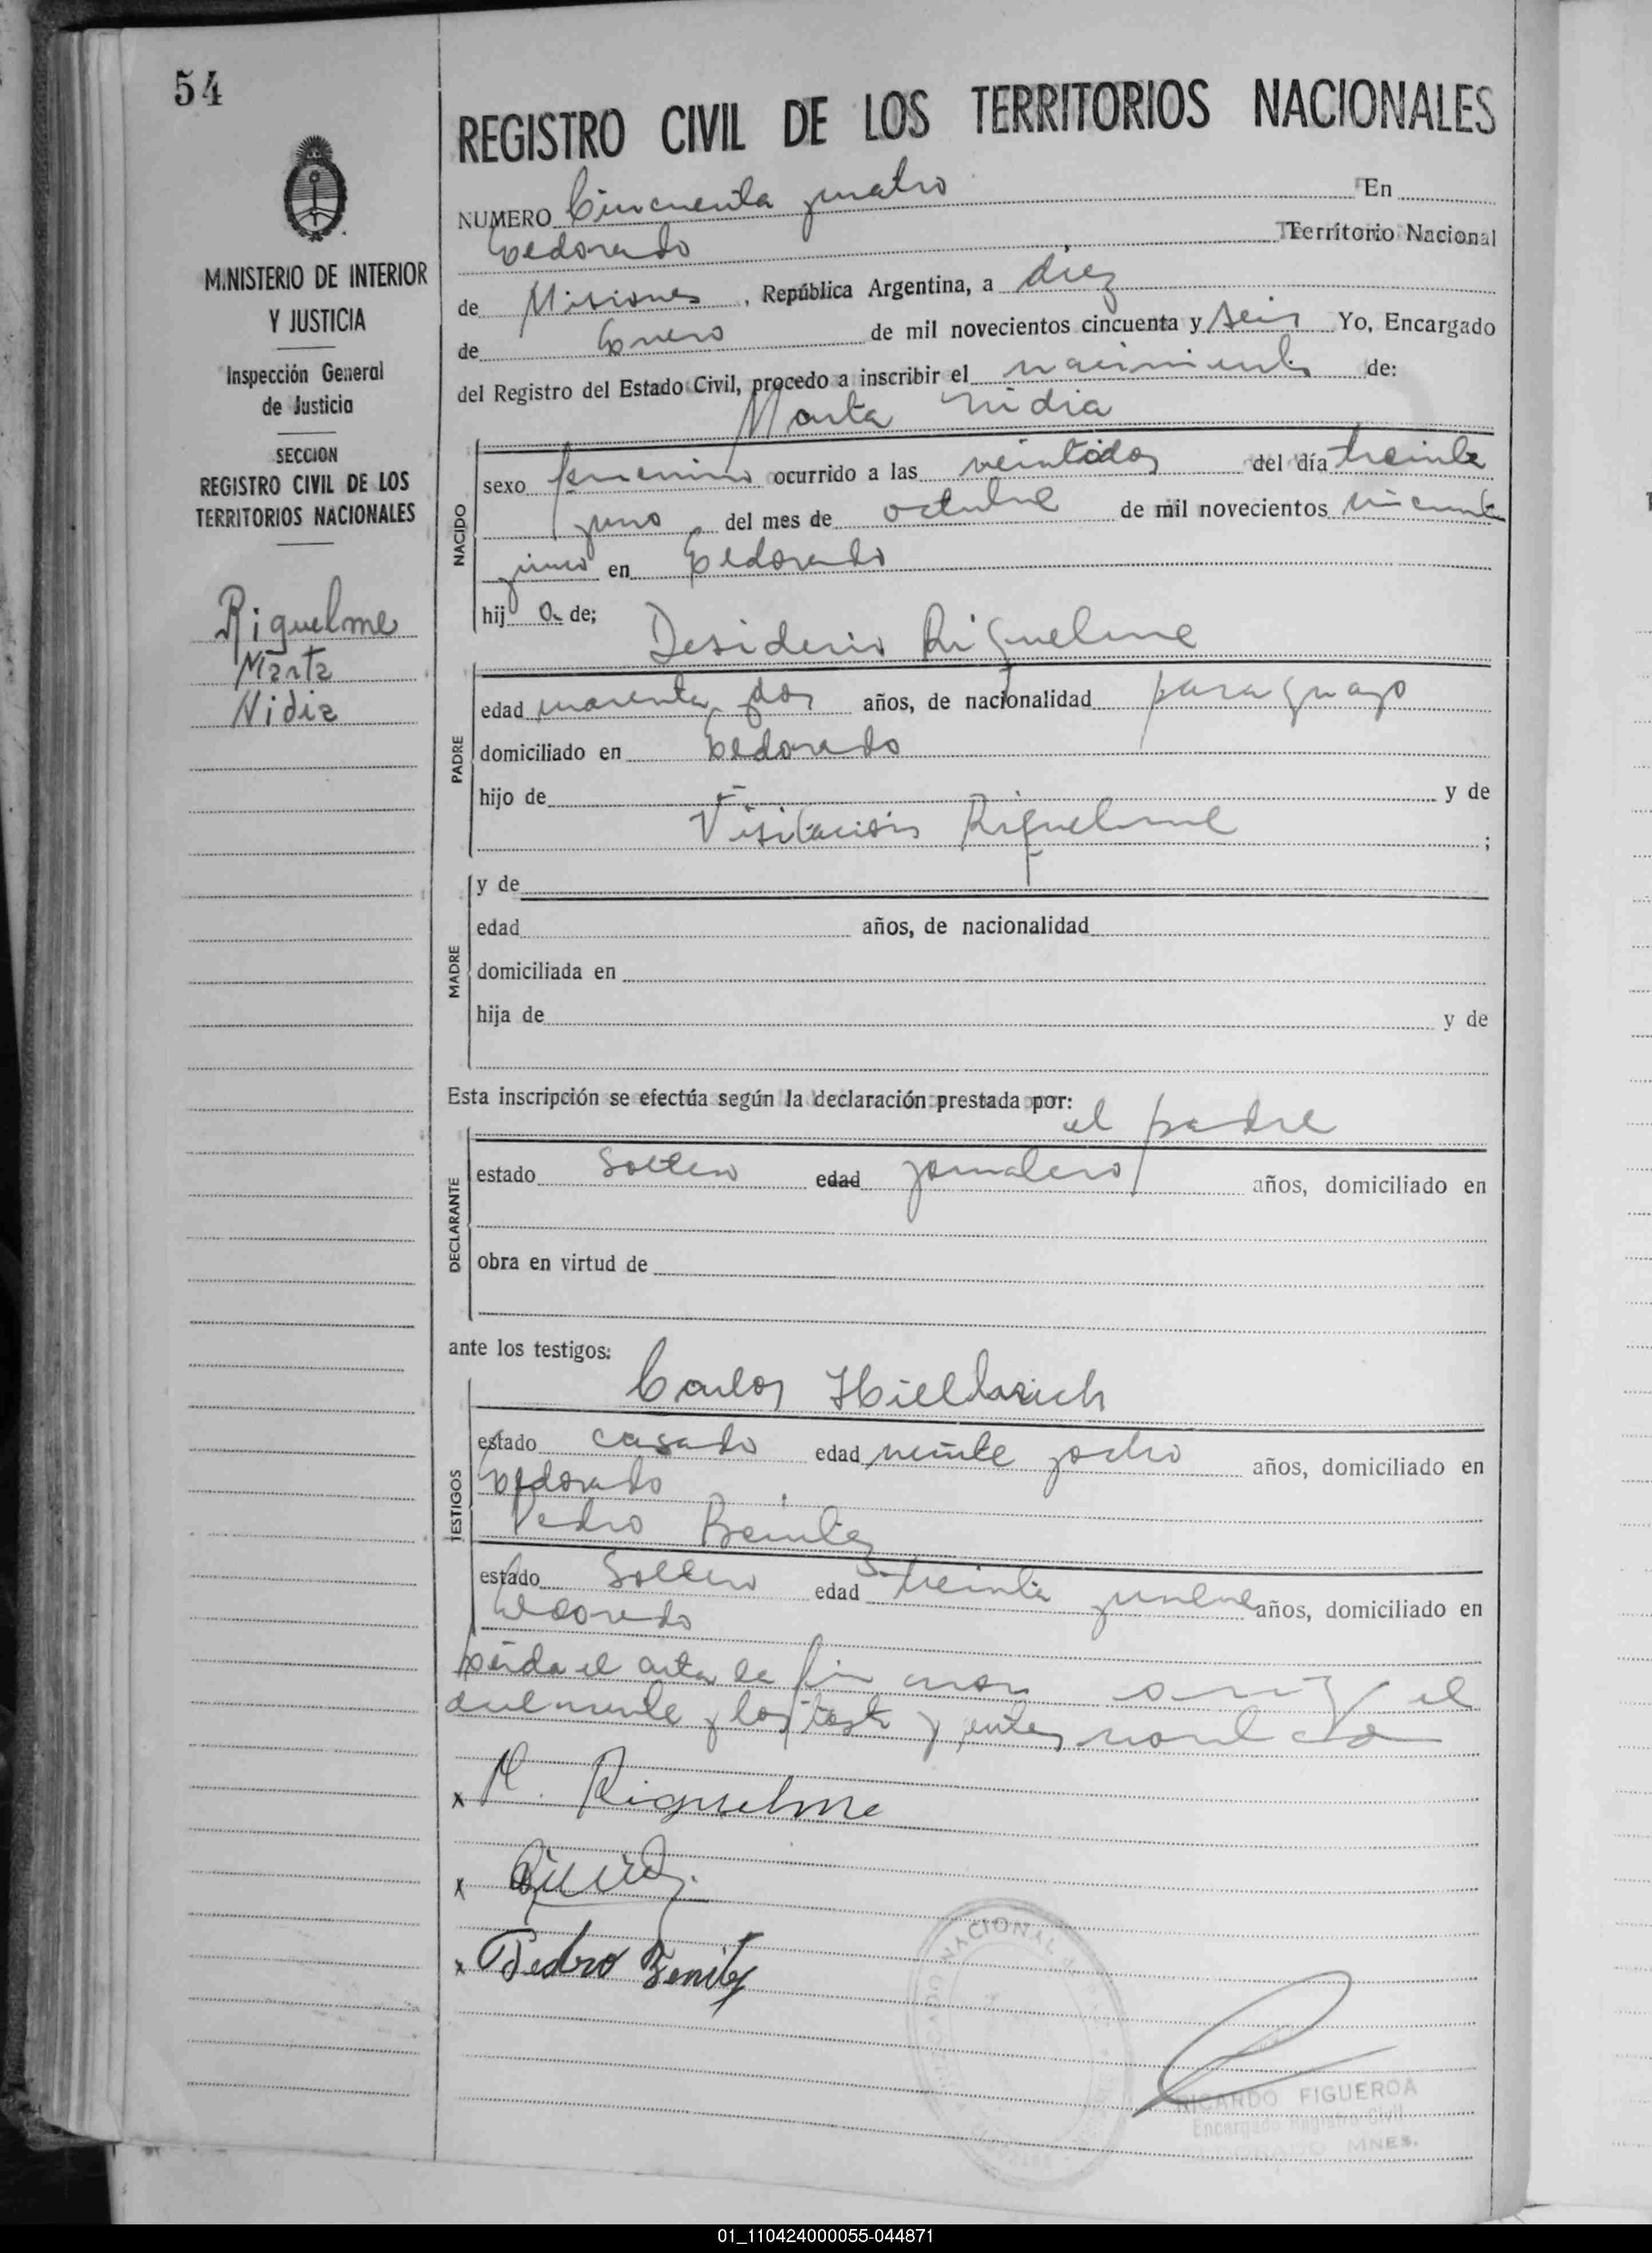 54
MINISTERIO DE INTERIOR
Y JUSTICIA
Inspección General
de Justicia
SECCION
REGISTRO CIVIL DE LOS
TERRITORIOS NACIONALES
Riquelme
Marta
Nidia
REGISTRO CIVIL DE LOS TERRITORIOS NACIONALES
NUMERO Cincuenta y cuatro En
Eldorado Territorio Nacional
de Misiones, República Argentina, a diez
de Enero de mil novecientos cincuenta y seis Yo, Encargado
del Registro del Estado Civil, procedo a inscribir el nacimiento de:
Marta Nidia
NACIDO
sexo femenino ocurrido a las veintidos del día treinta
y uno, del mes de octubre de mil novecientos cincuenta
y cinco en Eldorado
hij a de;
Desiderio Riquelme
PADRE
edad cuarenta y dos años, de nacionalidad paraguayo
domiciliado en Eldorado
hijo de y de
Visitación Riquelme ;
MADRE
y de
edad años, de nacionalidad
domiciliada en
hija de y de
Esta inscripción se efectúa según la declaración prestada por:
el padre
DECLARANTE
estado soltero edad jornalero años, domiciliado en
obra en virtud de
ante los testigos:
Carlos
TESTIGOS
estado casado edad veinte y ocho años, domiciliado en
Eldorado
Pedro Benitez
estado soltero edad treinta y nueve años, domiciliado en
Eldorado
Leída el acta la el
y los
x Riquelme
x
x Pedro Benitez
NACIONAL
RICARDO FIGUEROA
Encargado Registro Civil
ELDORADO MNES.
01_110424000055-044871